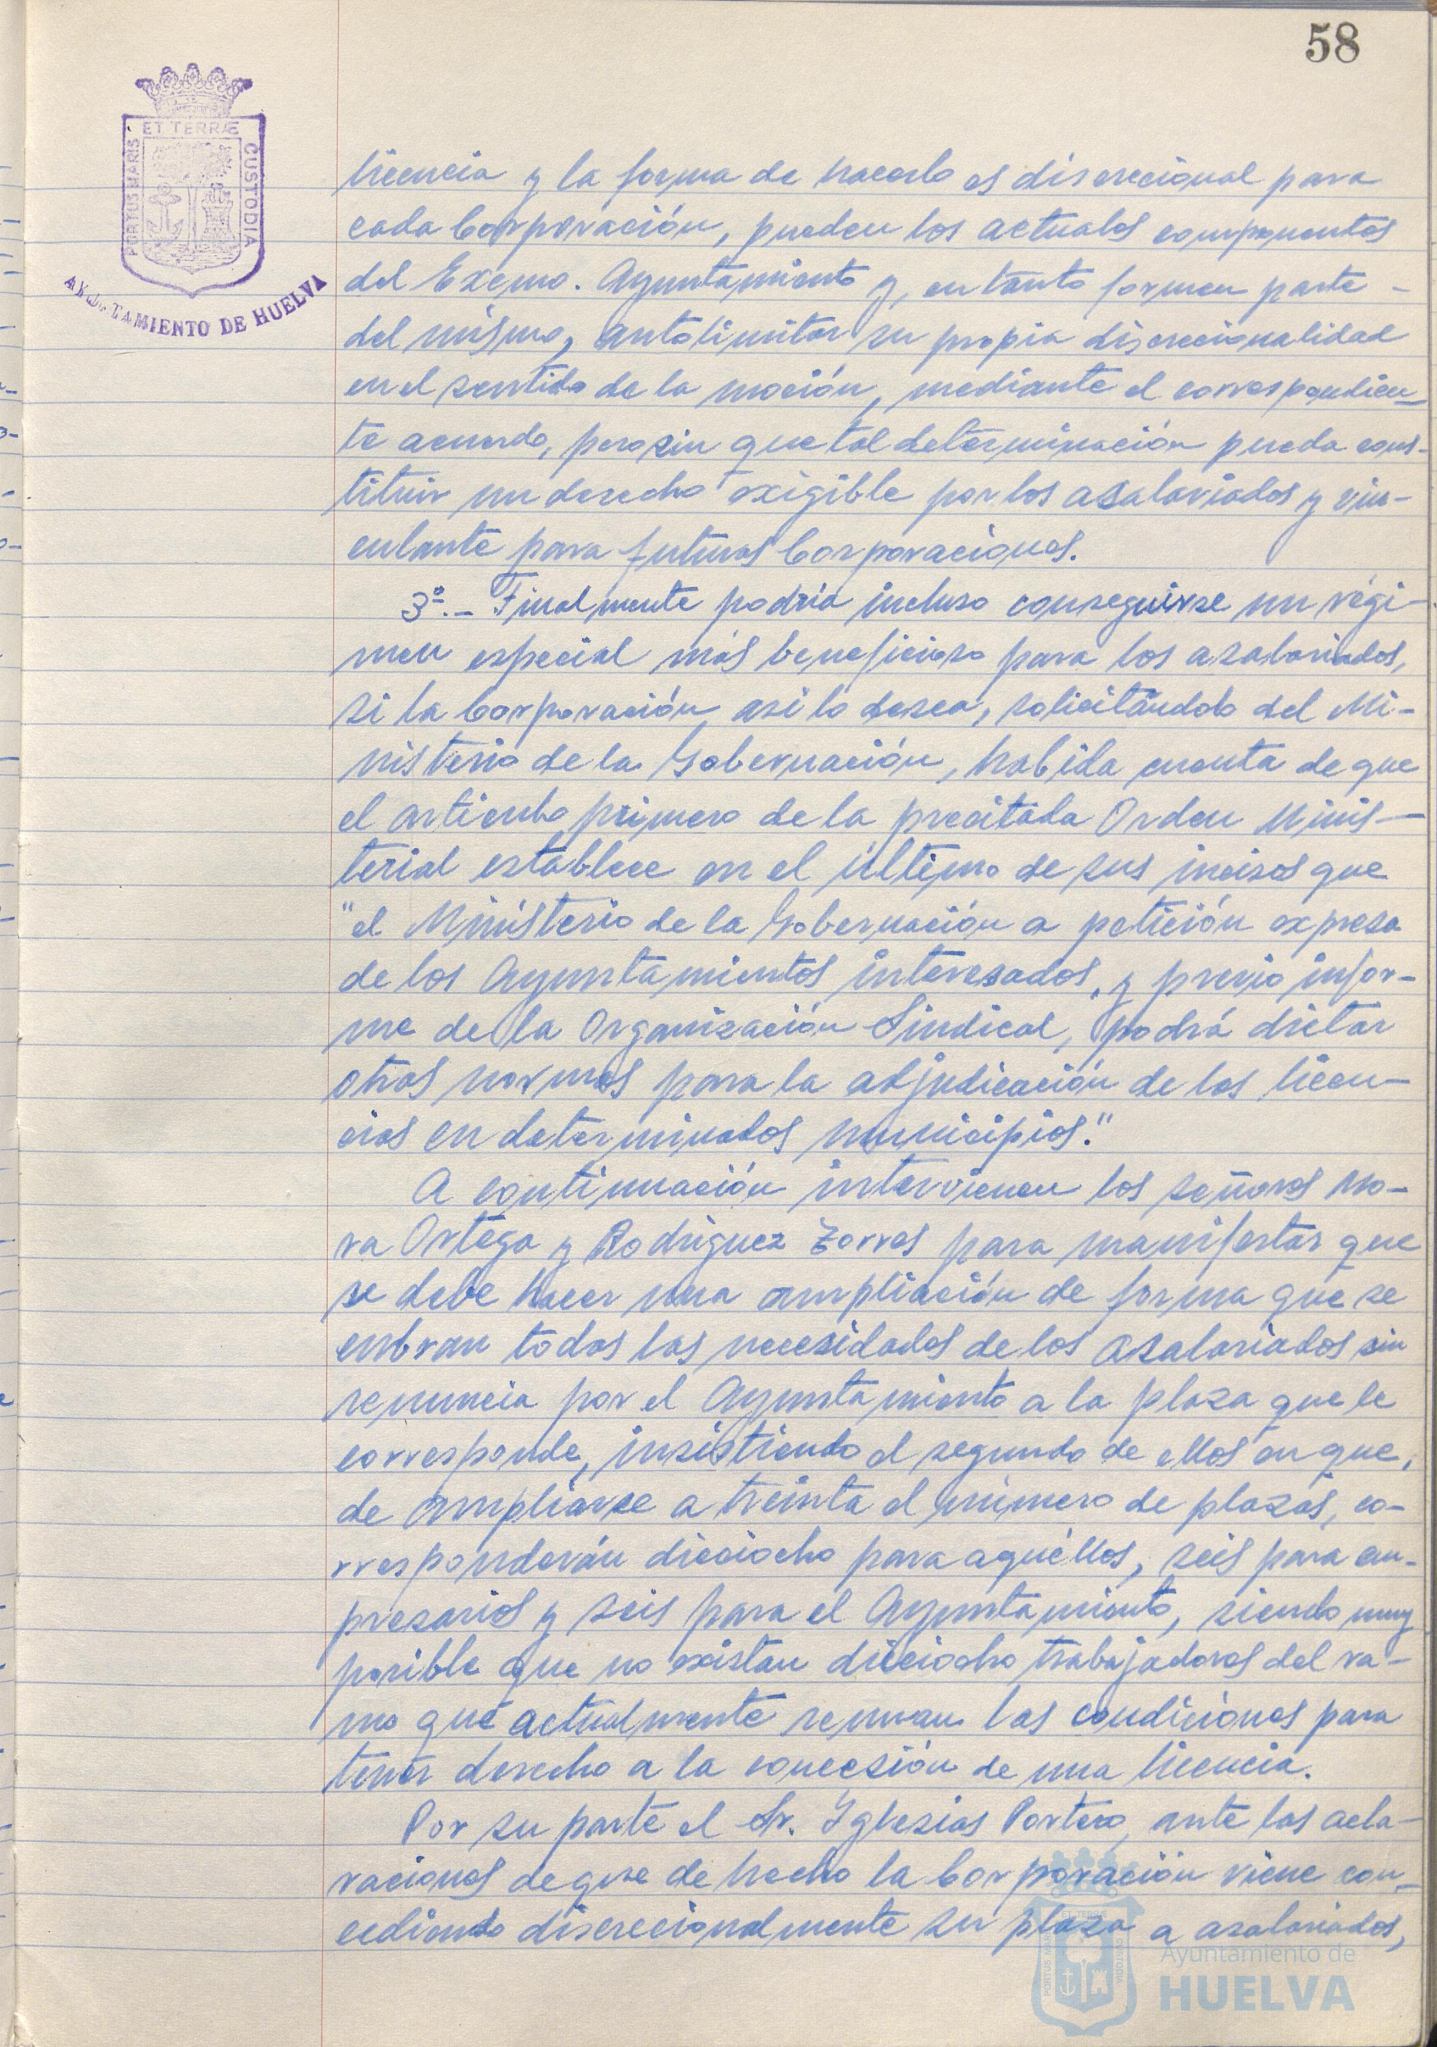 58
ET TERRÆ
PORTUS MARIS
CUSTODIA
AYUNTAMIENTO DE HUELVA
licencia y la forma de hacerlo es discrecional para
cada Corporación, pueden los actuales componentes
del Excmo. Ayuntamiento y, en tanto formen parte
del mismo, autolimitar su propia discrecionalidad
en el sentido de la moción, mediante el correspondien-
te acuerdo, pero sin que tal determinación pueda cons-
tituir un derecho exigible por los asalariados y vin-
culante para futuras Corporaciones.
3º.- Finalmente podría incluso conseguirse un régi-
men especial más beneficioso para los asalariados,
si la Corporación asi lo desea, solicitándolo del Mi-
nisterio de la Gobernación, habida cuenta de que
el artículo primero de la precitada Orden Minis-
terial establece en el último de sus incisos que
"el Ministerio de la Gobernación a petición expresa
de los Ayuntamientos interesados, y previo infor-
me de la Organización Sindical, podrá dictar
otras normas para la adjudicación de las licen-
cias en determinados municipios."
A continuación intervienen los señores Mo-
ra Ortega y Rodriguez Torres para manifestar que
se debe hacer una ampliación de forma que se
cubran todas las necesidades de los asalariados sin
renuncia por el Ayuntamiento a la plaza que le
corresponde, insistiendo el segundo de ellos en que,
de ampliarse a treinta el número de plazas, co-
rresponderán dieciocho para aquéllos, seis para em-
presarios y seis para el Ayuntamiento, siendo muy
posible que no existan dieciocho trabajadores del ra-
mo que actualmente reunan las condiciones para
tener derecho a la concesión de una licencia.
Por su parte el Sr. Iglesias Portero, ante las acla-
raciones de que de hecho la Corporación viene con-
cediendo discrecionalmente su plaza a asalariados,
Ayuntamiento de
HUELVA